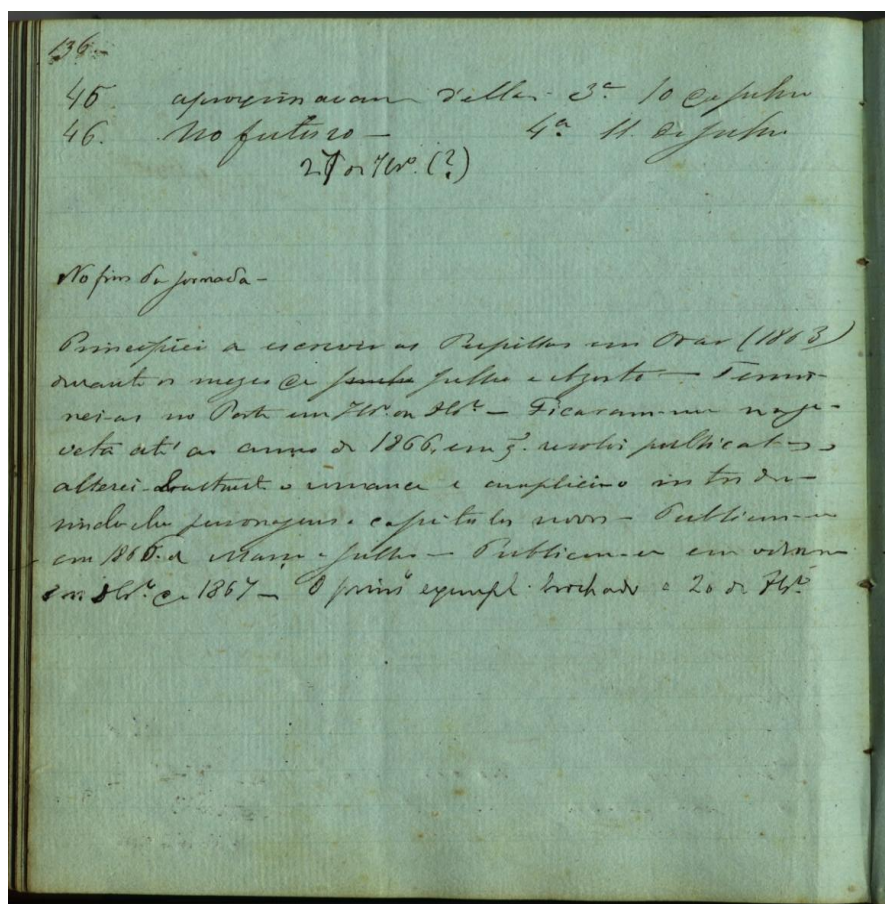 136 -
45. aproximavam d'ella - 3ª 10 de julho
46. No futuro - 4ª 11 de julho
27 de 7br.º (?)
No fim da jornada -
Principiei a escrever as Pupillas em Ovar (1863)
durante os mezes de julho e Agosto - Termi-
nei-as no Porto em 7br.º ou 8br.º - Ficaram-me na ga-
veta até ao anno de 1866, em q. resolvi publical-as,
alterei o romance e ampliei-o introdu-
zindo-lhe personagens e capitulos novos - Publicou-se
em 1866 de Março a Julho - Publicou-se em volume
em 8br.º de 1867 - O prim.º exempl. brochado a 20 de